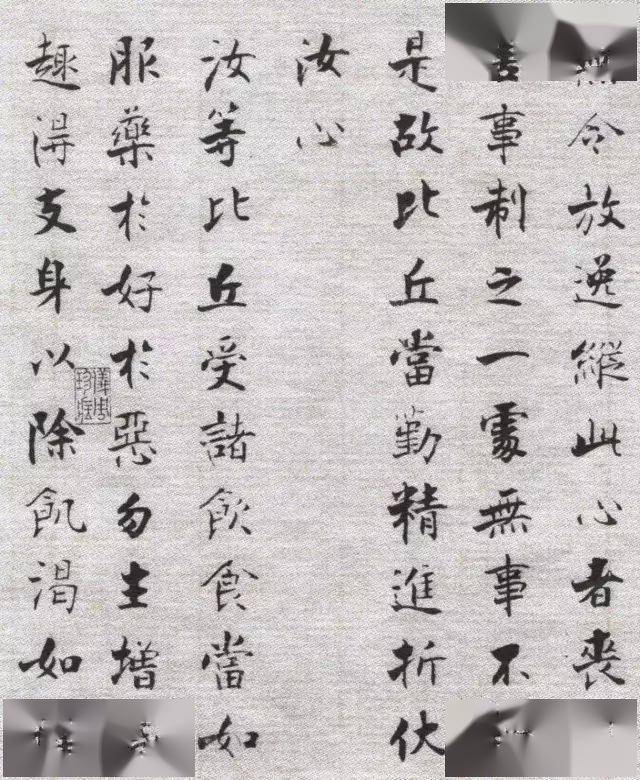 令放逸縱此心者喪
事制之一處無事不
是故比丘當勤精進折伏
汝心
汝等比丘受諸飲食當如
服藥於好於惡勿生增
趣得支身以除飢渴如
儀周珍藏